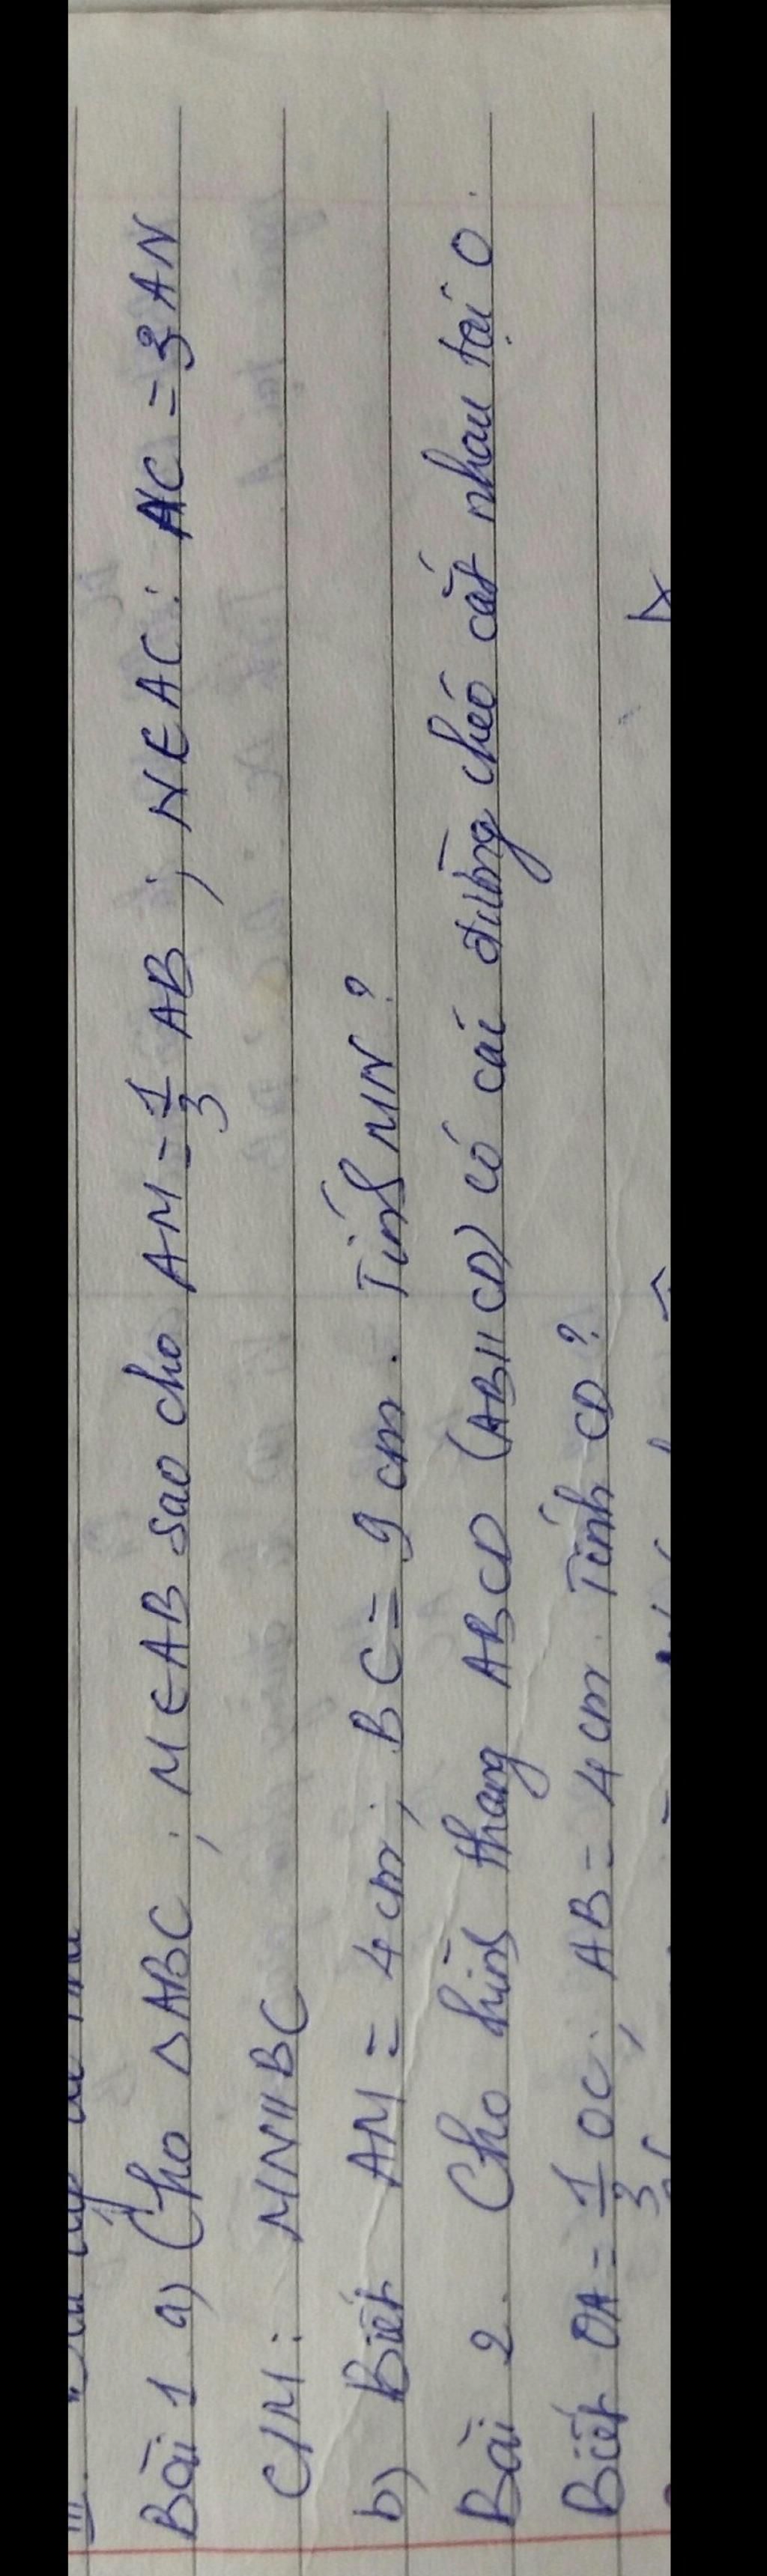 Bài 1 a) Cho ΔABC ; M∈AB sao cho AM = 1/3 AB ; N∈AC : AC = 3AN
C/M : MN//BC
b) Biết AM = 4cm ; BC = 9cm . Tính MN ?
Bài 2. Cho hình thang ABCD (AB//CD) có các đường chéo cắt nhau tại O.
Biết OA = 1/3 OC ; AB = 4cm . Tính CD ?